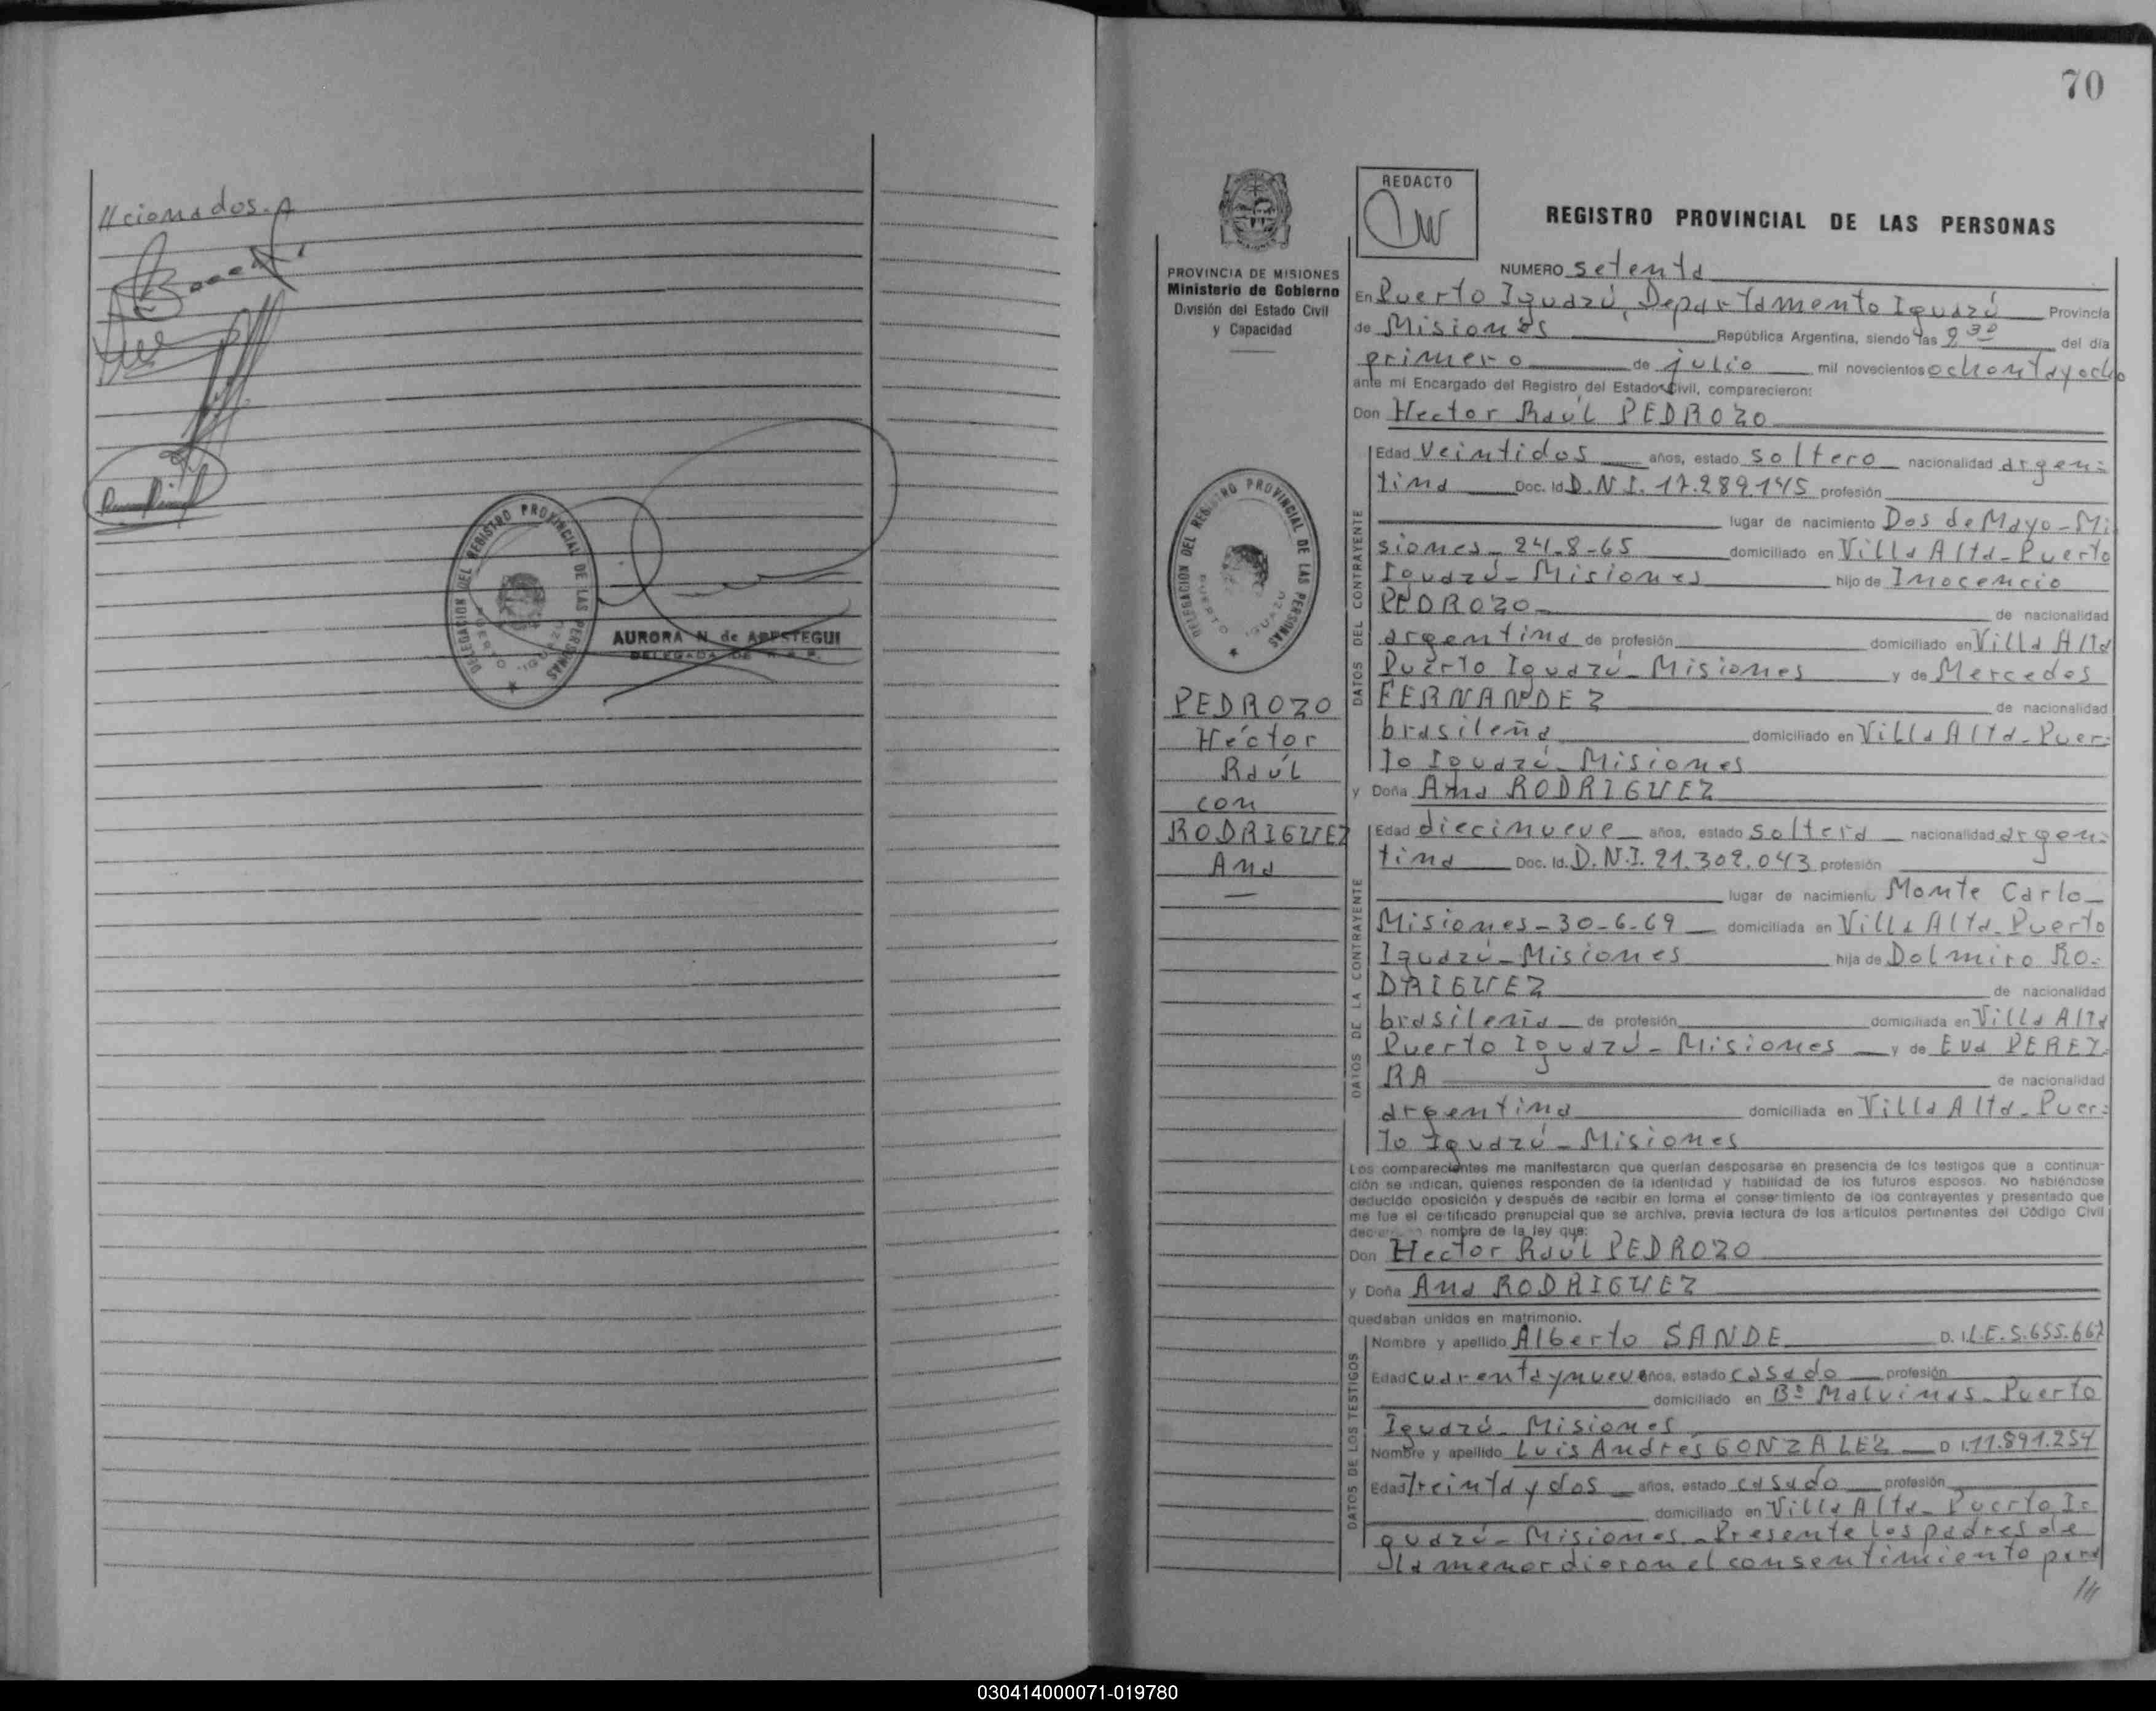 //cionados.
DELEGACION DEL REGISTRO PROVINCIAL DE LAS PERSONAS
PUERTO IGUAZU
AURORA N. de ARESTEGUI
DELEGADA DE R.P.P.
70
REDACTO
REGISTRO PROVINCIAL DE LAS PERSONAS
PROVINCIA DE MISIONES
Ministerio de Gobierno
División del Estado Civil
y Capacidad
DELEGACION DEL REGISTRO PROVINCIAL DE LAS PERSONAS
PUERTO IGUAZU
PEDROZO
Hector
Raúl
con
RODRIGUEZ
Ana
—
NUMERO setenta
En Puerto Iguazú, Departamento Iguazú Provincia
de Misiones República Argentina, siendo las 9 30 del día
primero de julio mil novecientos ochentayocho
ante mi Encargado del Registro del Estado Civil, comparecieron:
Don Hector Raúl PEDROZO
DATOS DEL CONTRAYENTE
Edad Veintidos años, estado soltero nacionalidad argen=
tina Doc. Id. D.N.I. 17.289.145 profesión
lugar de nacimiento Dos de Mayo-Mi
siones- 24-8-65 domiciliado en Villa Alta-Puerto
Iguazú-Misiones hijo de Inocencio
PEDROZO- de nacionalidad
argentina de profesión domiciliado en Villa Alta
Puerto Iguazú-Misiones y de Mercedes
FERNANDEZ de nacionalidad
brasileña domiciliado en Villa Alta-Puer=
to Iguazú-Misiones
y Doña Ana RODRIGUEZ
DATOS DE LA CONTRAYENTE
Edad diecinueve años, estado soltera nacionalidad argen=
tina Doc. Id. D.N.I. 21.302.043 profesión
lugar de nacimiento Monte Carlo-
Misiones-30-6-69 domiciliada en Villa Alta-Puerto
Iguazú-Misiones hija de Dolmiro RO=
DRIGUEZ de nacionalidad
brasileña de profesión domiciliada en Villa Alta
Puerto Iguazú-Misiones y de Eva PEREI=
RA de nacionalidad
argentina domiciliada en Villa Alta-Puer=
to Iguazú-Misiones
Los comparecientes me manifestaron que querían desposarse en presencia de los testigos que a continua-
ción se indican, quienes responden de la identidad y habilidad de los futuros esposos. No habiéndose
deducido oposición y después de recibir en forma el consentimiento de los contrayentes y presentado que
me fue el certificado prenupcial que se archiva, previa lectura de los artículos pertinentes del Código Civil
nombre de la ley que:
Don Hector Raúl PEDROZO
y Doña Ana RODRIGUEZ
quedaban unidos en matrimonio.
DATOS DE LOS TESTIGOS
Nombre y apellido Alberto SANDE D. I. L.E. 5.655.667
Edad cuarentaynueve años, estado casado profesión
domiciliado en Bº Malvinas-Puerto
Iguazú-Misiones
Nombre y apellido Luis Andres GONZALEZ D I. 11.891.254
Edad treinta y dos años, estado casado profesión
domiciliado en Villa Alta-Puerto I=
guazú-Misiones-Presente los padres de
la menor dieron el consentimiento para
///
030414000071-019780